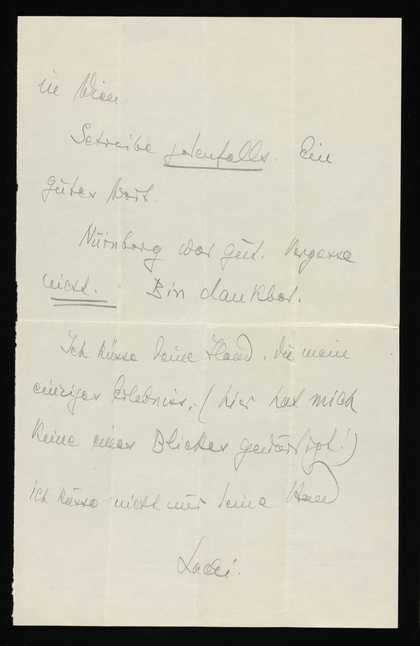 in Wien.
Schreibe jedenfalls. Ein
gutes Wort.
Nürnberg war gut. Vergesse
nicht. Bin dankbar.
Ich küsse deine Hand, die mein
einziges Erlebnis, (hier hat mich
keine eines Blickes gewürdigt!)
ich küsse nicht nur deine Hand